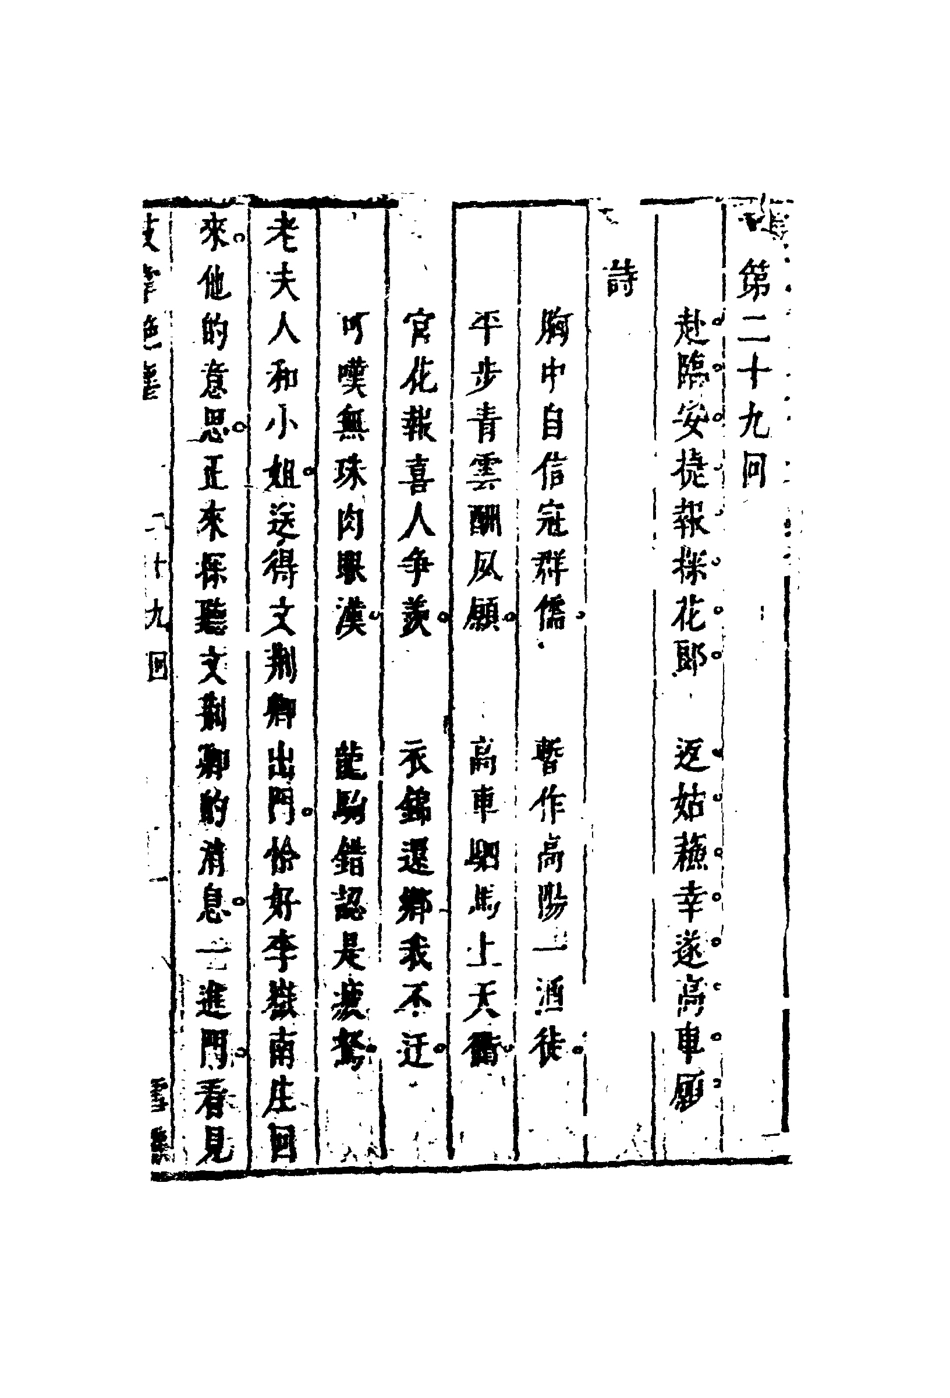 第二十九回
赴臨安捷報採花郎　返姑蘓幸遂高車願
詩
胸中自信冠群儒。　暫作高陽一酒徒。
平步青雲酬夙願。　高車駟馬上天衢。
官花報喜人争羨。　衣錦還鄉我不迂。
可嘆無珠肉眼漢。　龍駒錯認是疲駑。
老夫人和小姐。送得文荆卿出門。恰好李嶽南庄回
來。他的意思。正來探聽文荆卿的消息。一進門。看見
二十九回　一